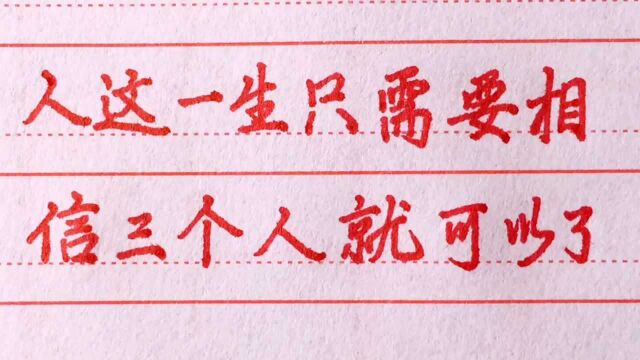 人这一生只需要相
信三个人就可以了